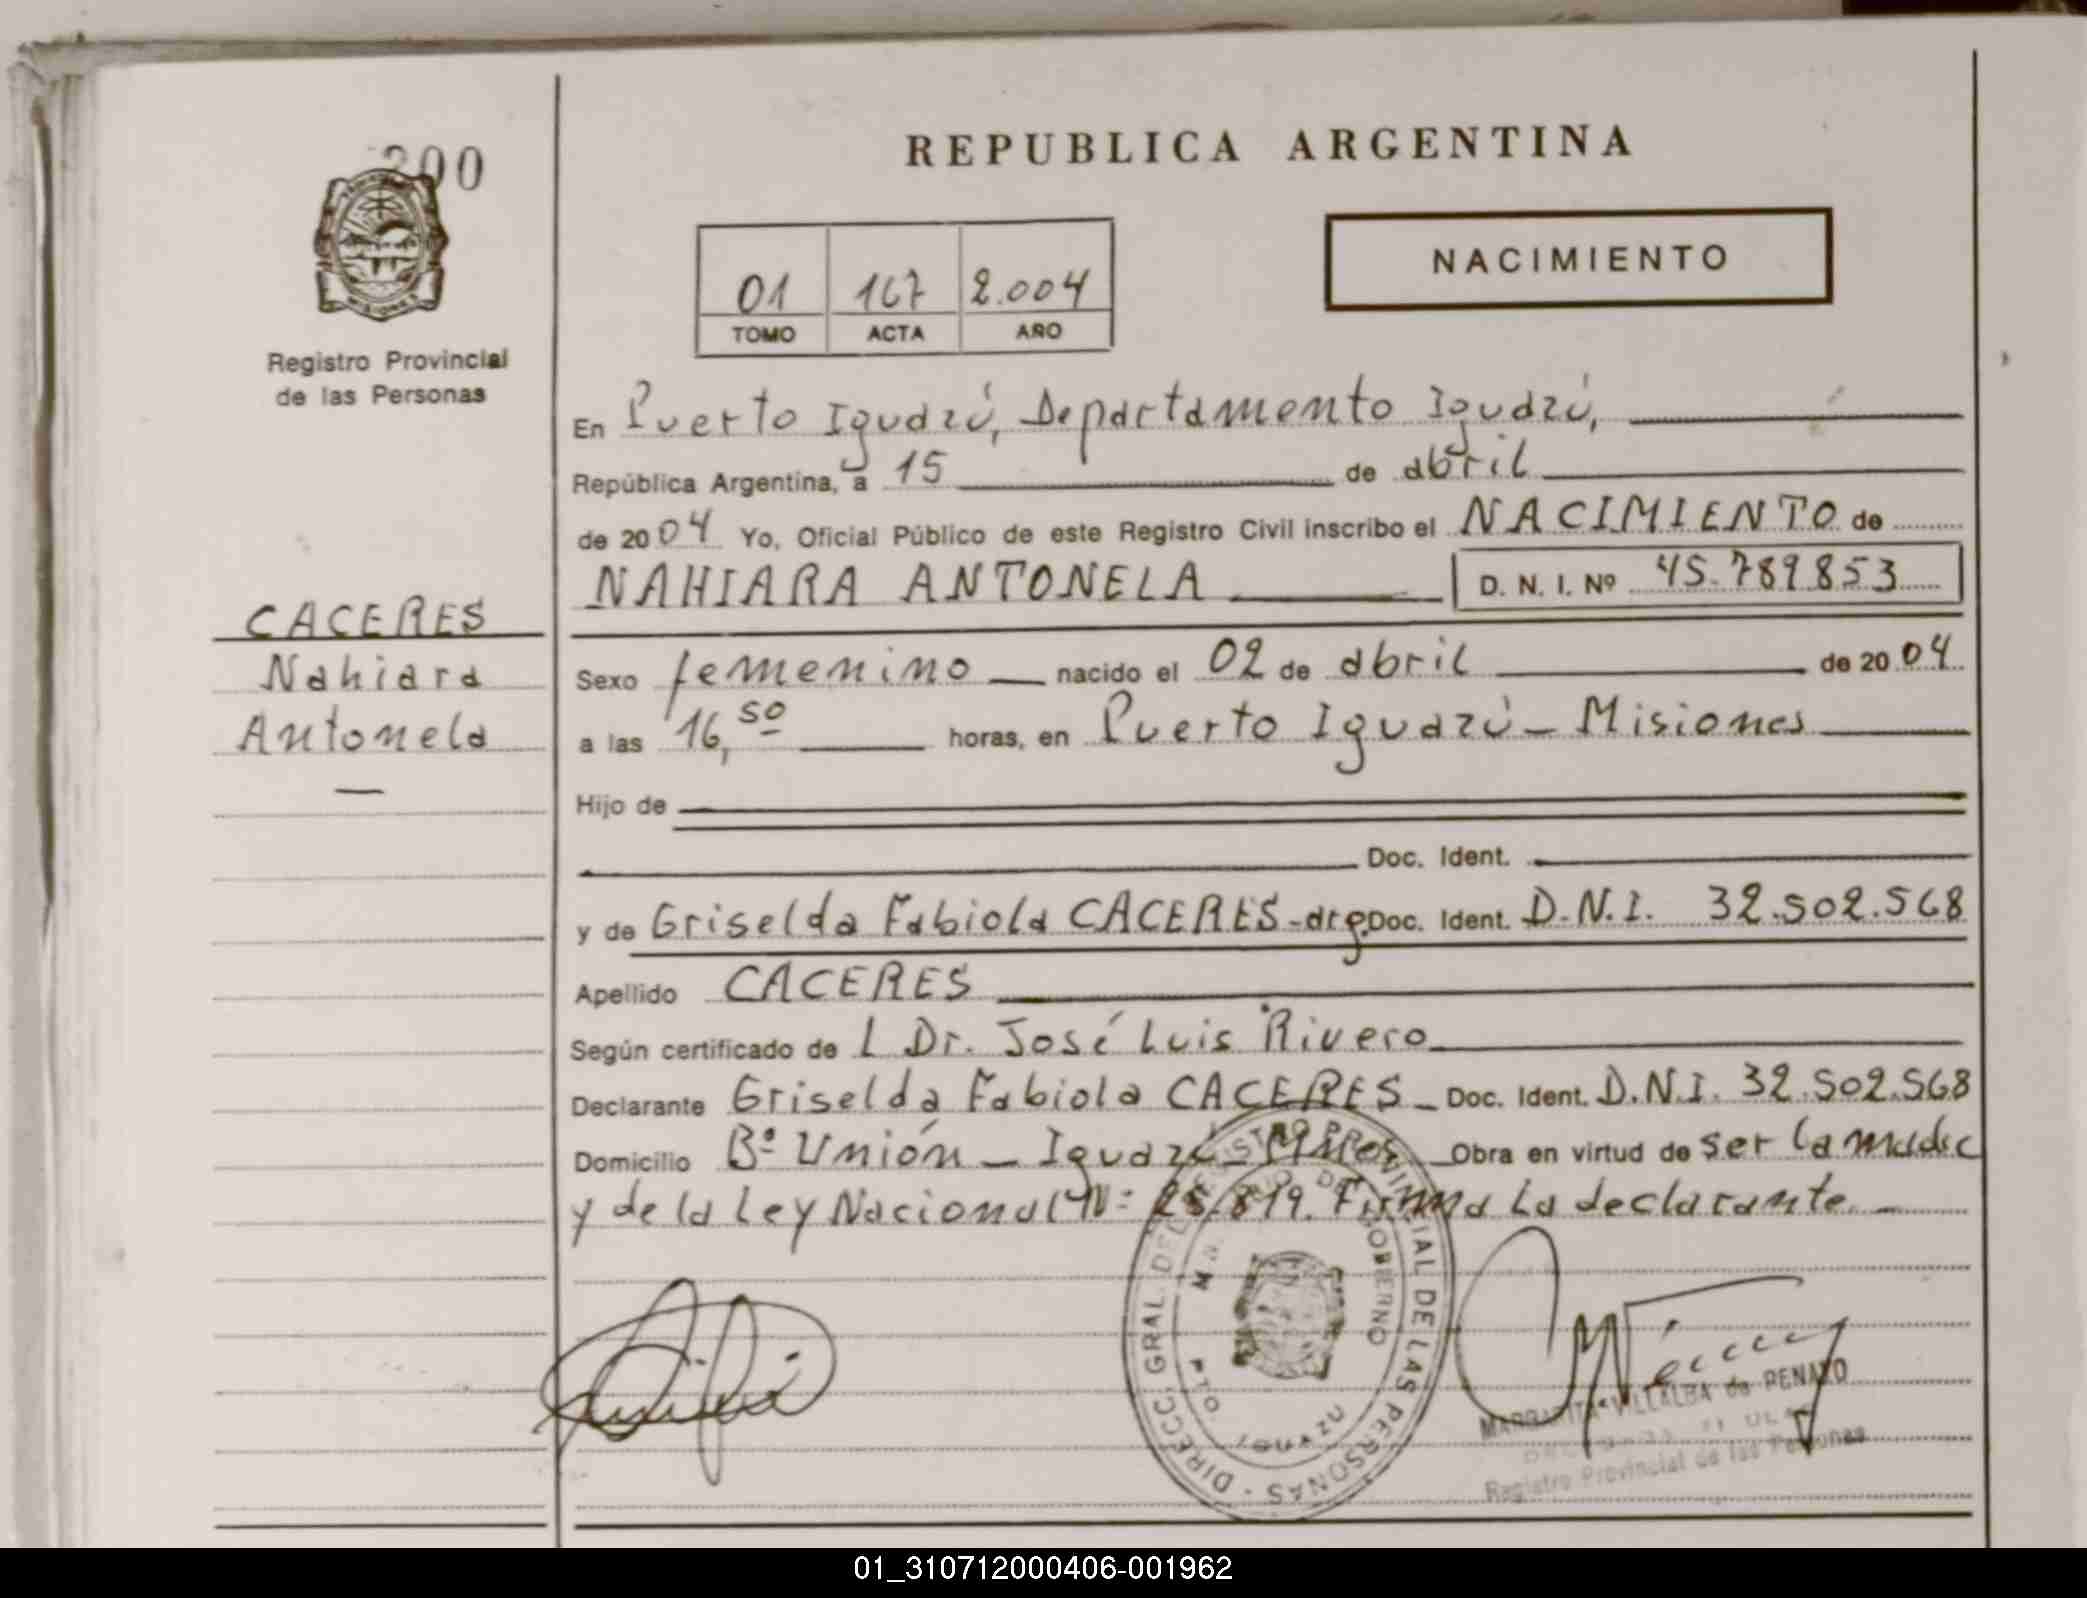 200
REPUBLICA ARGENTINA
NACIMIENTO
01 167 2.004
TOMO ACTA AÑO
Registro Provincial
de las Personas
En Puerto Iguazú, Departamento Iguazú,
República Argentina, a 15 de abril
de 2004 Yo, Oficial Público de este Registro Civil inscribo el NACIMIENTO de
NAHIARA ANTONELA D. N. I. Nº 45.789853
CACERES
Nahiara
Antonela
Sexo femenino nacido el 02 de abril de 2004
a las 16,50 horas, en Puerto Iguazú - Misiones
Hijo de
Doc. Ident.
y de Griselda Fabiola CACERES-arg. Doc. Ident. D.N.I. 32.502.568
Apellido CACERES
Según certificado de l Dr. José Luis Rivero
Declarante Griselda Fabiola CACERES Doc. Ident. D.N.I. 32.502.568
Domicilio Bº Unión - Iguazú - Mnes. Obra en virtud de ser la madre
y de la Ley Nacional Nº 25.819. Firma la declarante.
DIRECC. GRAL. DEL REGISTRO PROVINCIAL DE LAS PERSONAS
GOBIERNO
PTO. IGUAZU
MARGARITA VILLALBA de PENAYO
Registro Provincial de las Personas
01_310712000406-001962